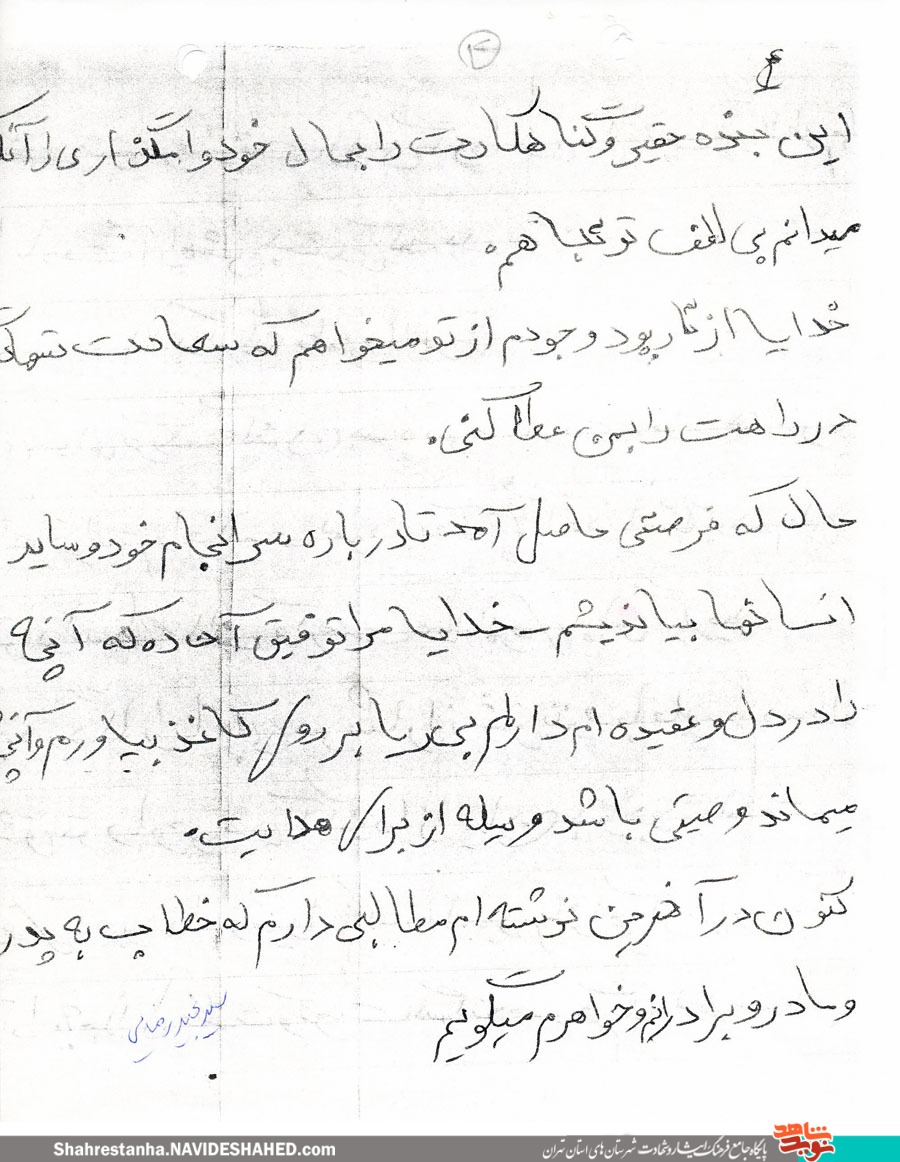 ۴
این بنده حقیر و گناهکارت را بحال خود وا مگذاری زآنکه
میدانم بی لطف تو تباهم.
خدایا از تار پود وجودم از تو میخواهم که سعادت شهادت
در راهت را بمن عطا کنی.
حال که فرصتی حاصل آمد تا درباره سرانجام خود و ساید
انسانها بیاندیشم – خدایا مرا توفیق آن ده که آنچه
را در دل و عقیده ام دارم بی ریا بر روی کاغذ بیاورم و آنچه
میماند وصیتی باشد وسیله از برای هدایت.
کنون در آخرین نوشته ام مطالبی دارم که خطاب به پدر
و مادر و برادرانم و خواهرم میگویم
سید مجید رضایی
Shahrestanha.NAVIDESHAHED.com
نوید شاهد
پایگاه جامع فرهنگ ایثار و شهادت شهرستان های استان تهران